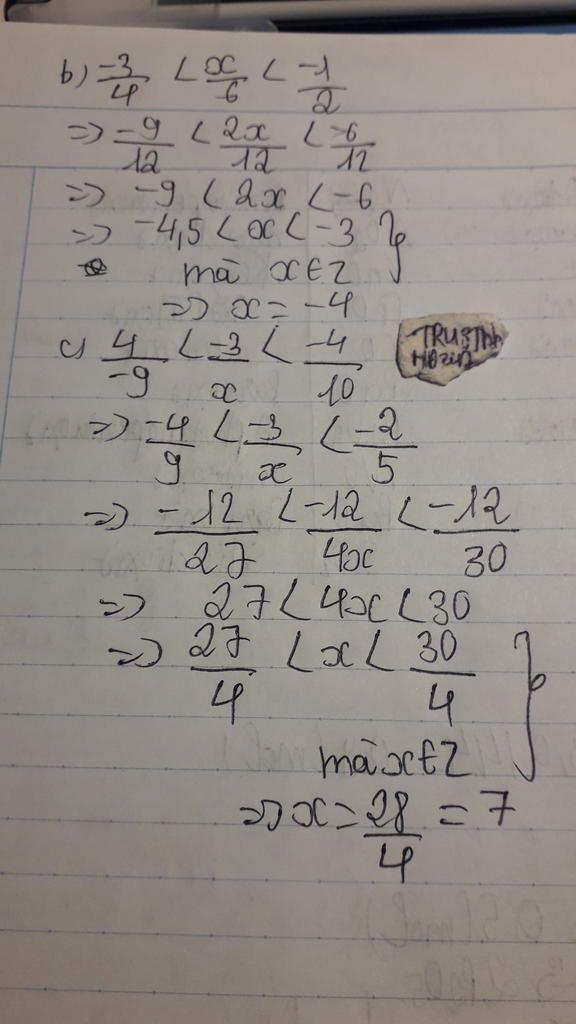 b) -3/4 < x/6 < -1/2
=> -9/12 < 2x/12 < -6/12
=> -9 < 2x < -6
=> -4,5 < x < -3 }
mà x∈Z
=> x = -4
c) 4/-9 < -3/x < -4/10
=> -4/9 < -3/x < -2/5
=> -12/27 < -12/4x < -12/30
=> 27 < 4x < 30
=> 27/4 < x < 30/4 }
mà x∈Z
=> x = 28/4 = 7